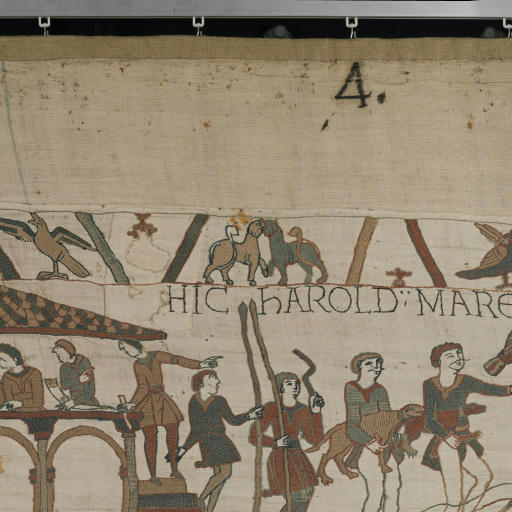 4.
HIC hAROLD: MARE